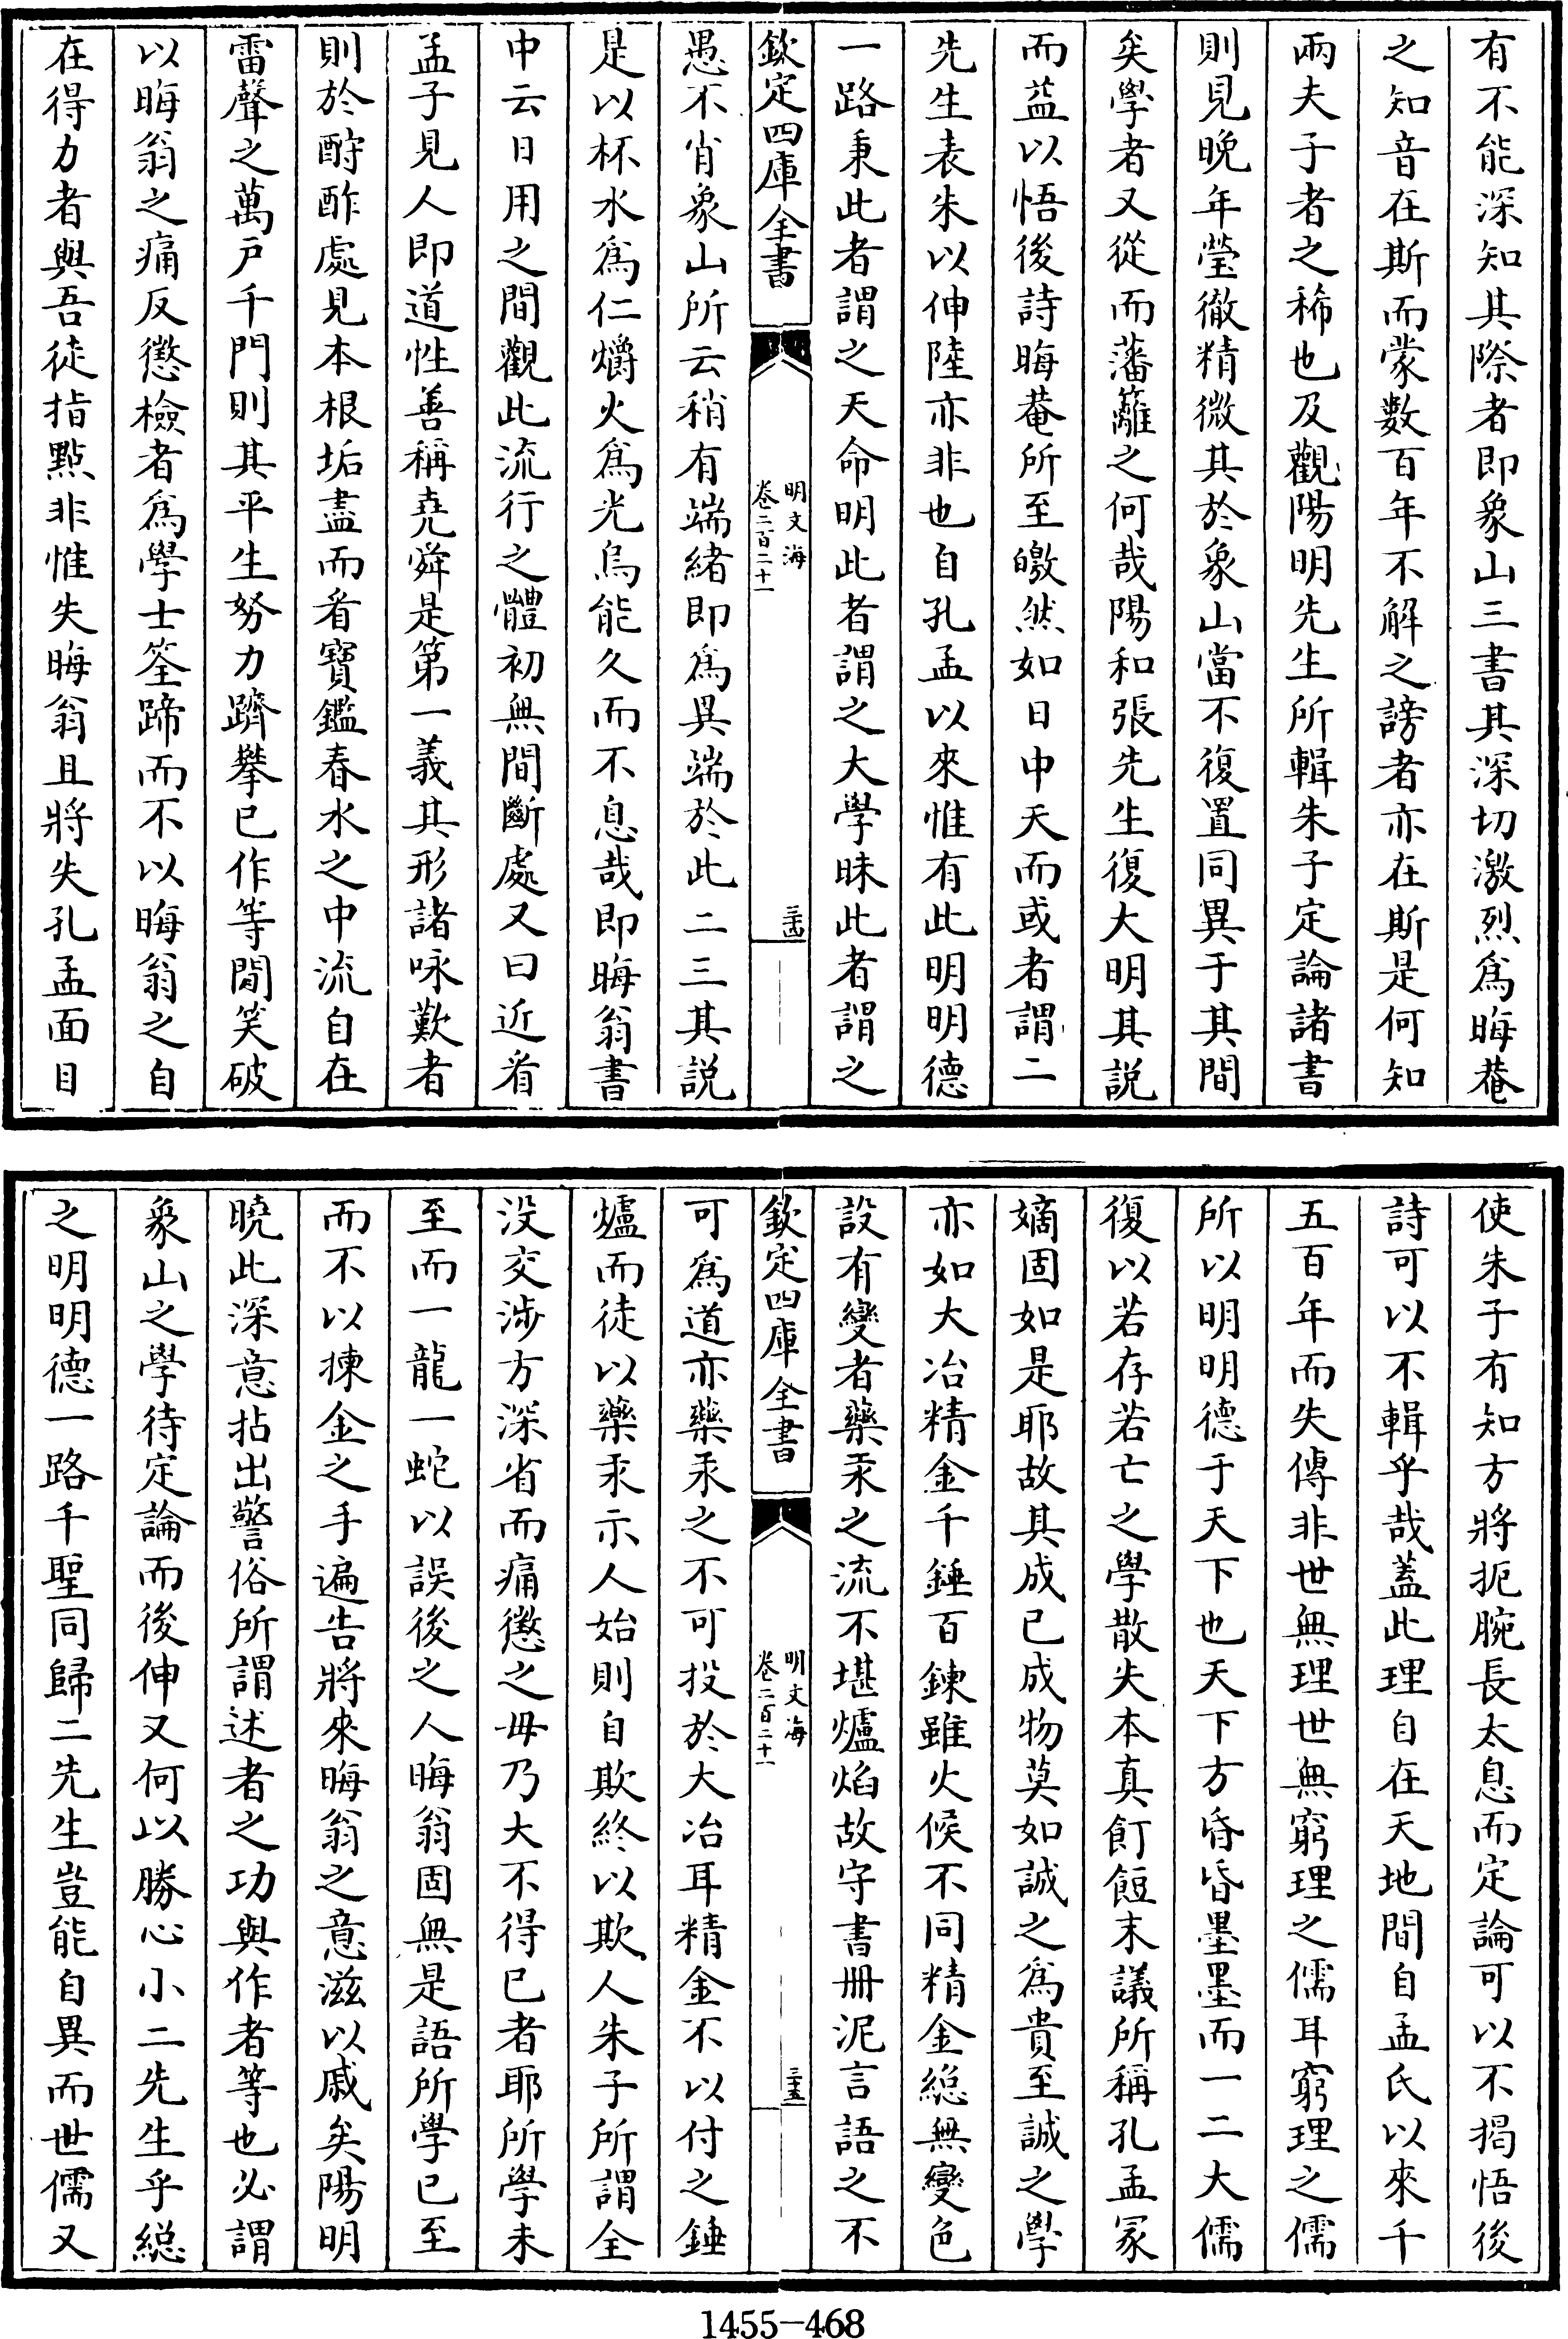 有不能深知其際者即象山三書其深切激烈爲晦菴
之知音在斯而蒙數百年不解之謗者亦在斯是何知
兩夫子者之稀也及觀陽明先生所輯朱子定論諸書
則見晚年瑩徹精微其於象山當不復置同異于其間
矣學者又從而藩籬之何哉陽和張先生復大明其説
而益以悟後詩晦菴所至皦然如日中天而或者謂二
先生表朱以伸陸亦非也自孔孟以來惟有此明明德
一路秉此者謂之天命明此者謂之大學昧此者謂之
欽定四庫全書
明文海
卷二百二十一
三十四
愚不肖象山所云稍有端緒即爲異端於此二三其説
是以杯水爲仁爝火爲光烏能久而不息哉即晦翁書
中云日用之間觀此流行之體初無間斷處又曰近看
孟子見人即道性善稱堯舜是第一義其形諸咏歎者
則於酧酢處見本根垢盡而看寳鑑春水之中流自在
雷聲之萬户千門則其平生努力躋攀已作等閒笑破
以晦翁之痛反懲檢者爲學士筌蹄而不以晦翁之自
在得力者與吾徒指點非惟失晦翁且將失孔孟面目
使朱子有知方將扼腕長太息而定論可以不揭悟後
詩可以不輯乎哉蓋此理自在天地間自孟氏以來千
五百年而失傳非世無理世無窮理之儒耳窮理之儒
所以明明德于天下也天下方昏昏墨墨而一二大儒
復以若存若亡之學散失本真飣餖末議所稱孔孟冢
嫡固如是耶故其成已成物莫如誠之爲貴至誠之學
亦如大冶精金千錘百鍊雖火候不同精金總無變色
設有變者藥汞之流不堪爐焰故守書冊泥言語之不
欽定四庫全書
明文海
卷二百二十一
三十五
可爲道亦藥汞之不可投於大冶耳精金不以付之錘
爐而徒以藥汞示人始則自欺終以欺人朱子所謂全
没交渉方深省而痛懲之毋乃大不得已者耶所學未
至而一龍一蛇以誤後之人晦翁固無是語所學已至
而不以揀金之手遍告將來晦翁之意滋以戚矣陽明
曉此深意拈出警俗所謂述者之功與作者等也必謂
象山之學待定論而後伸又何以勝心小二先生乎總
之明明德一路千聖同歸二先生豈能自異而世儒又
1455-468